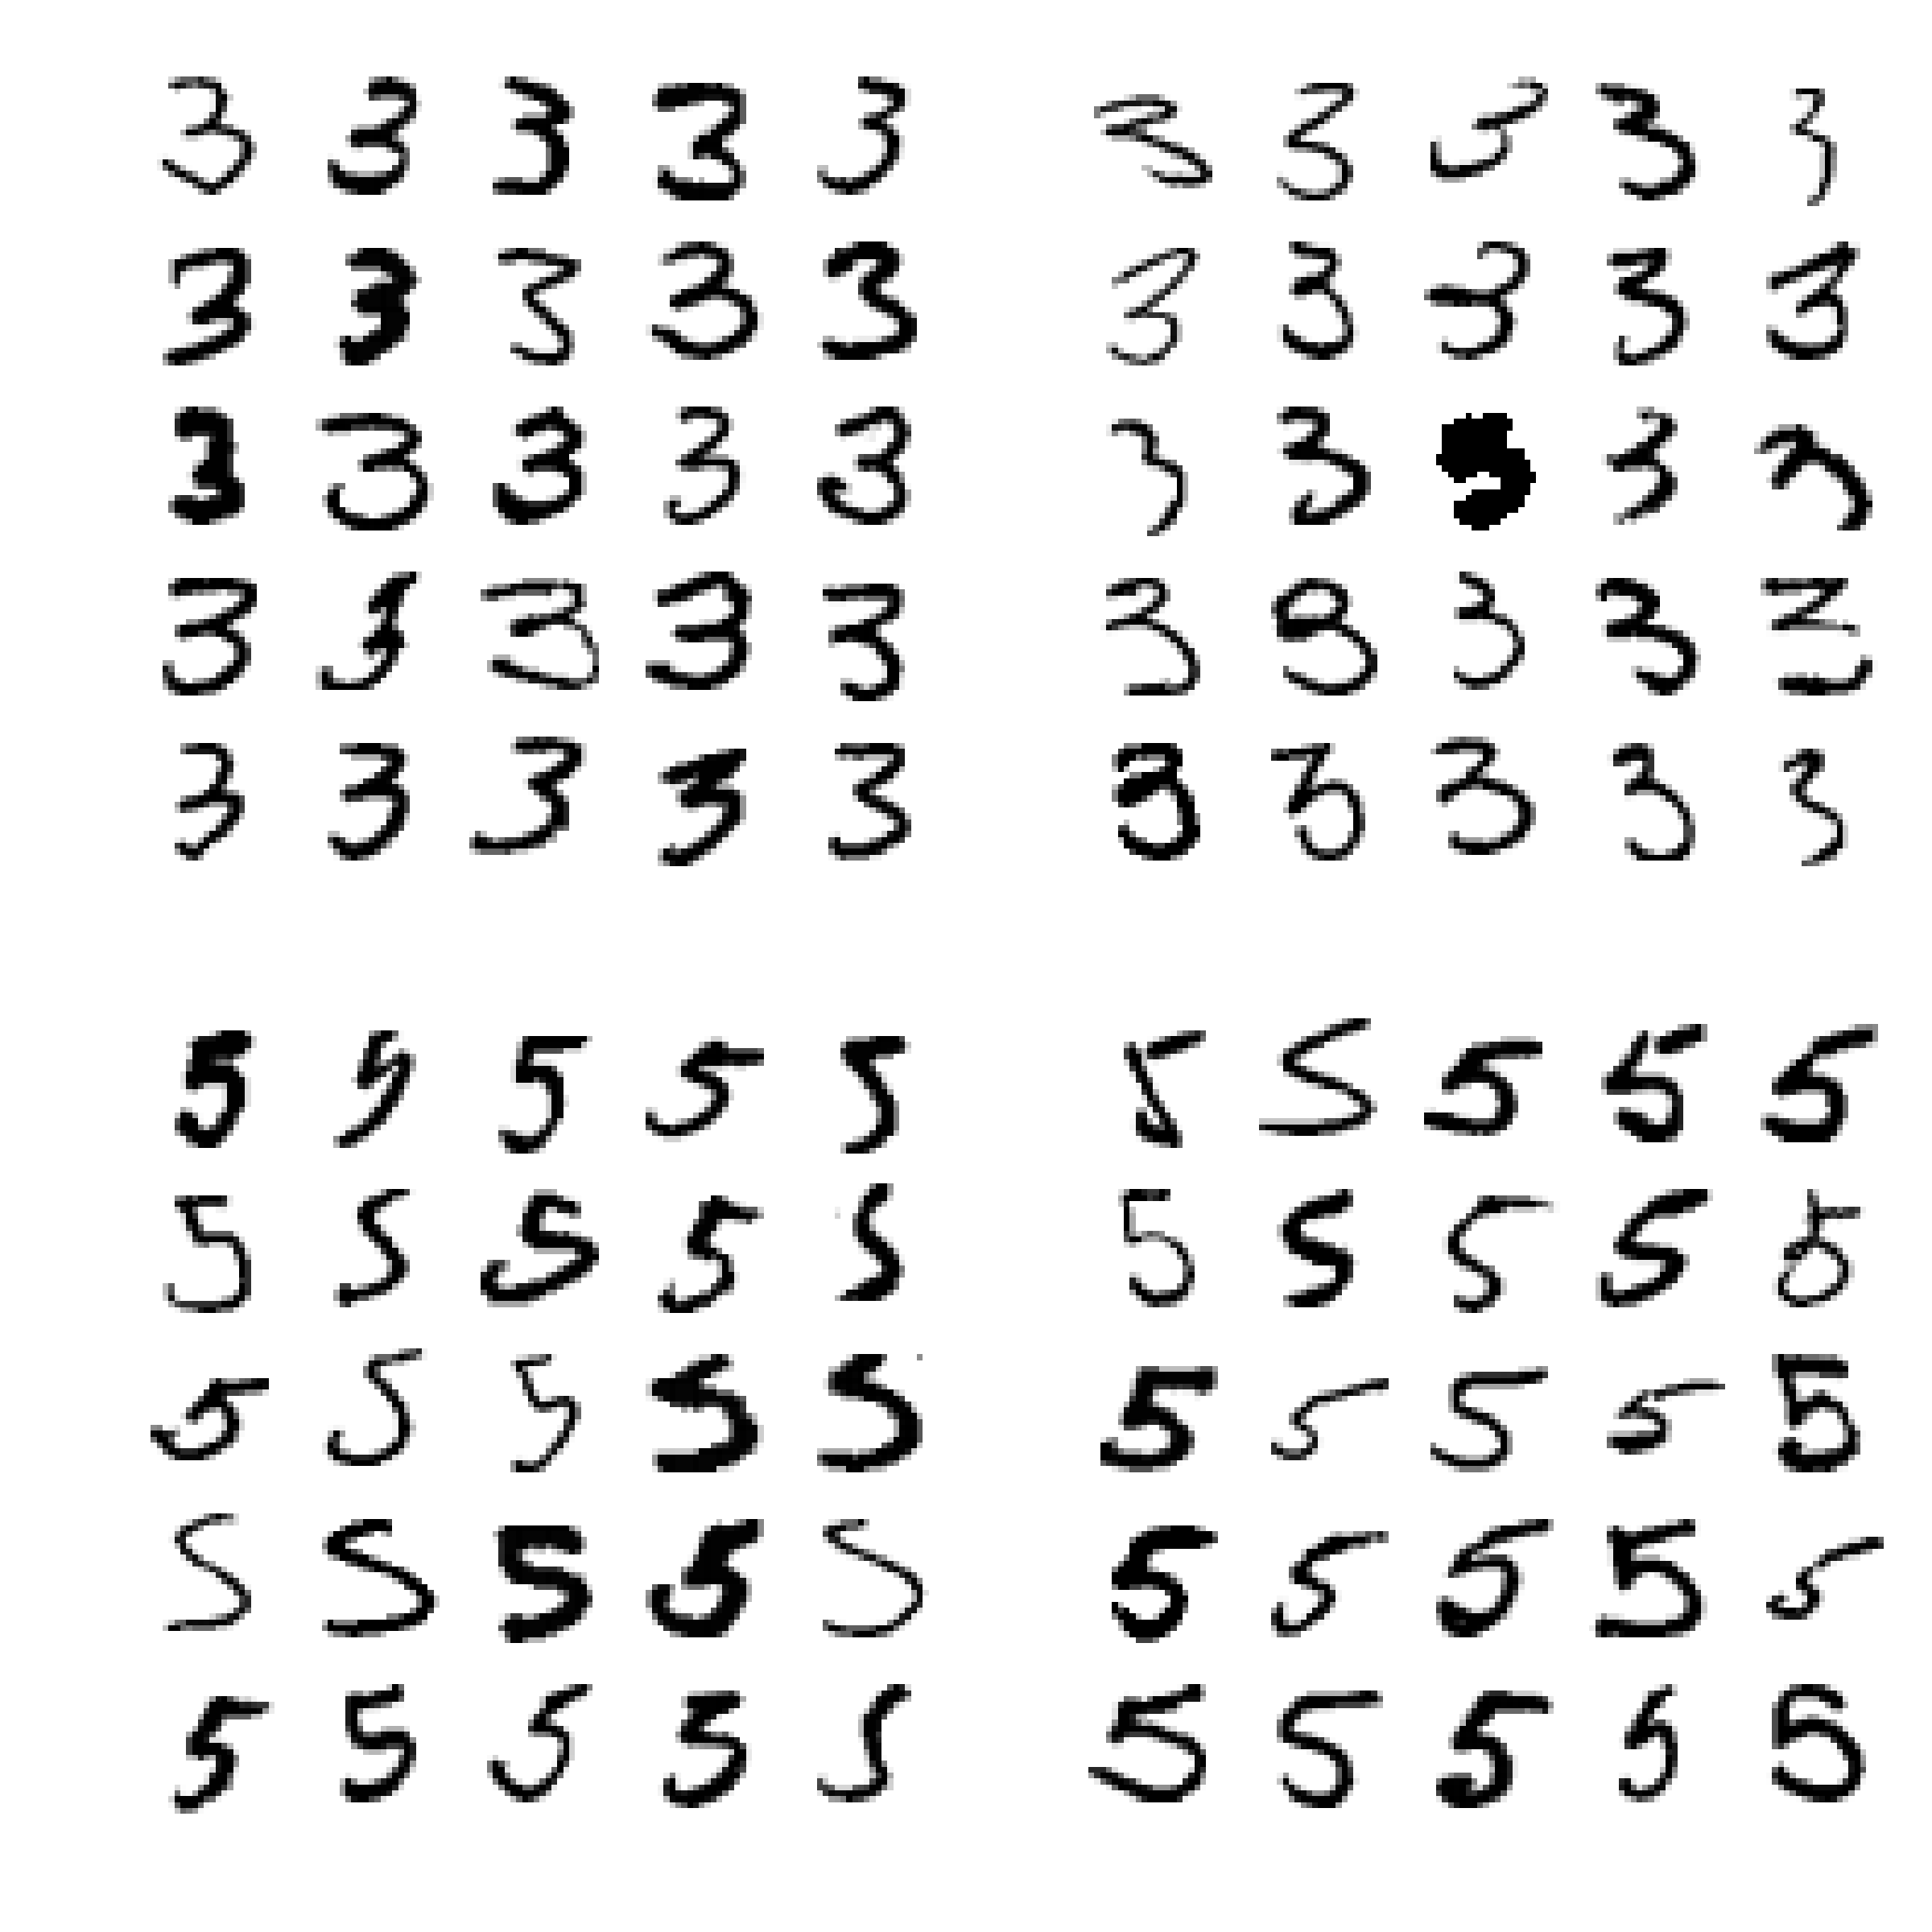 3 3 3 3 3 3 3 3 3 3
3 3 3 3 3 3 3 3 3 3
3 3 3 3 3 3 3 3 3
3 3 3 3 3 3 3 3 3 3
3 3 3 3 3 3 3 3 3 3
5 5 5 5 5 5 5 5 5 5
5 5 5 5 5 5 5 5 5 5
5 5 5 5 5 5 5 5 5 5
5 5 5 5 5 5 5 5 5 5
5 5 5 5 5 5 5 5 5 5